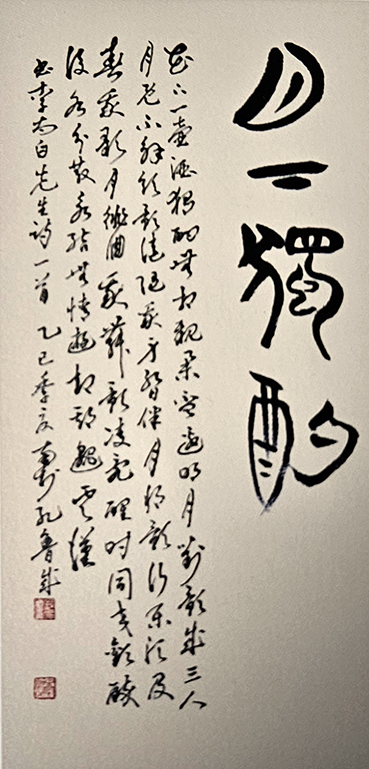 月下獨酌
花下一壺酒獨酌無相親舉杯邀明月對影成三人
月既不解飲影徒隨我身暫伴月將影行樂須及
春我歌月徘徊我舞影凌亂醒時同交歡醉
後各分散永結無情遊相期邈雲漢
書李太白先生詩一首 乙巳季夏 孔魯成